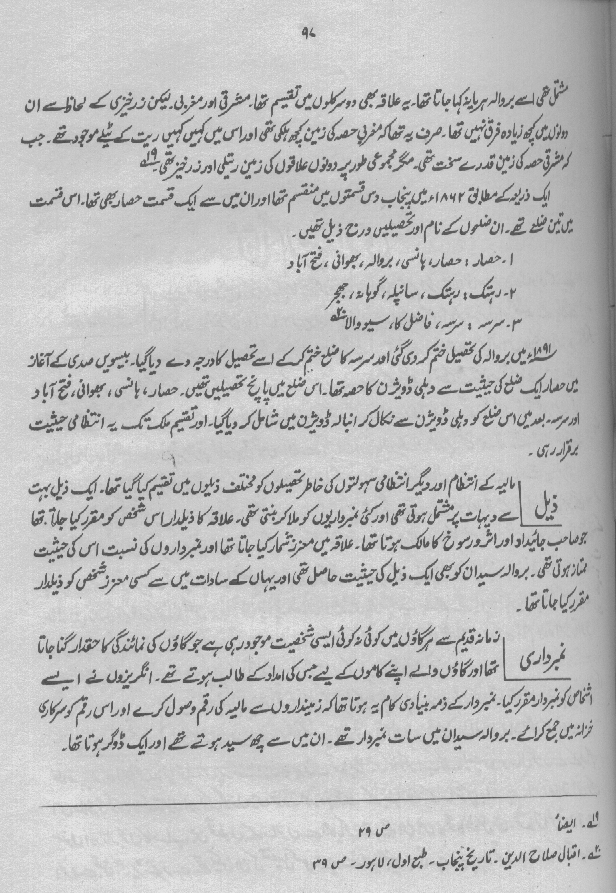 ۹۸
مشتمل تھی اسے بروالہ ہریانہ کہا جاتا تھا۔ یہ علاقہ بھی دو سرکلوں میں تقسیم تھا۔ مشرقی اور مغربی۔ لیکن زرخیزی کے لحاظ سے ان
دونوں میں کچھ زیادہ فرق نہیں تھا۔ صرف یہ تھا کہ مغربی حصہ کی زمین کچھ ہلکی تھی اور اس میں کہیں کہیں ریت کے ٹیلے موجود تھے۔ جب
کہ مشرقی حصہ کی زمین قدرے سخت تھی۔ مگر مجموعی طور پر دونوں علاقوں کی زمین ریتلی اور زرخیز تھی ۱۹؎
ایک ذریعہ کے مطابق ۱۸۶۲ء میں پنجاب دس قسمتوں میں منقسم تھا اور ان میں سے ایک قسمت حصار بھی تھا۔ اس قسمت
میں تین ضلعے تھے۔ ان ضلعوں کے نام اور تحصیلیں درج ذیل تھیں۔
۱۔ حصار : حصار، ہانسی، بروالہ، بھوانی، فتح آباد
۲۔ رہتک : رہتک، سانپلہ، گوہانہ، جھجر
۳۔ سرسہ : سرسہ، فاضلکا، سیووالا ۲۰؎
۱۸۹۱ء میں بروالہ کی تحصیل ختم کر دی گئی اور سرسہ کا ضلع ختم کر کے اسے تحصیل کا درجہ دے دیا گیا۔ بیسویں صدی کے آغاز
میں حصار ایک ضلع کی حیثیت سے دہلی ڈویژن کا حصہ تھا۔ اس ضلع میں پانچ تحصیلیں تھیں۔ حصار، ہانسی، بھوانی، فتح آباد
اور سرسہ۔ بعد میں اس ضلع کو دہلی ڈویژن سے نکال کر انبالہ ڈویژن میں شامل کر دیا گیا۔ اور تقسیم ملک تک یہ انتظامی حیثیت
برقرار رہی۔
ذیل مالیہ کے انتظام اور دیگر انتظامی سہولتوں کی خاطر تحصیلوں کو مختلف ذیلوں میں تقسیم کیا گیا تھا۔ ایک ذیل بہت
سے دیہات پر مشتمل ہوتی تھی اور کئی نمبرداریوں کو ملا کر بنتی تھی۔ علاقہ کا ذیلدار اس شخص کو مقرر کیا جاتا تھا
جو صاحب جائیداد اور اثر و رسوخ کا مالک ہوتا تھا۔ علاقہ میں معزز شمار کیا جاتا تھا اور نمبرداروں کی نسبت اس کی حیثیت
ممتاز ہوتی تھی۔ بروالہ سیدان کو بھی ایک ذیل کی حیثیت حاصل تھی اور یہاں کے سادات میں سے کسی معزز شخص کو ذیلدار
مقرر کیا جاتا تھا۔
نمبرداری زمانہ قدیم سے ہر گاؤں میں کوئی نہ کوئی ایسی شخصیت موجود رہی ہے جو گاؤں کی نمائندگی کا حقدار گنا جاتا
تھا اور گاؤں والے اپنے کاموں کے لیے جس کی امداد کے طالب ہوتے تھے۔ انگریزوں نے ایسے
اشخاص کو نمبردار مقرر کیا۔ نمبردار کے ذمہ بنیادی کام یہ ہوتا تھا کہ زمینداروں سے مالیہ کی رقم وصول کرے اور اس رقم کو سرکاری
خزانہ میں جمع کرائے۔ بروالہ سیدان میں سات نمبردار تھے۔ ان میں سے چھ سید ہوتے تھے اور ایک ڈوگر ہوتا تھا۔
۱۹؎۔ ایضاً ص ۲۹
۲۰؎۔ اقبال صلاح الدین۔ تاریخ پنجاب۔ طبع اول، لاہور۔ ص ۳۹